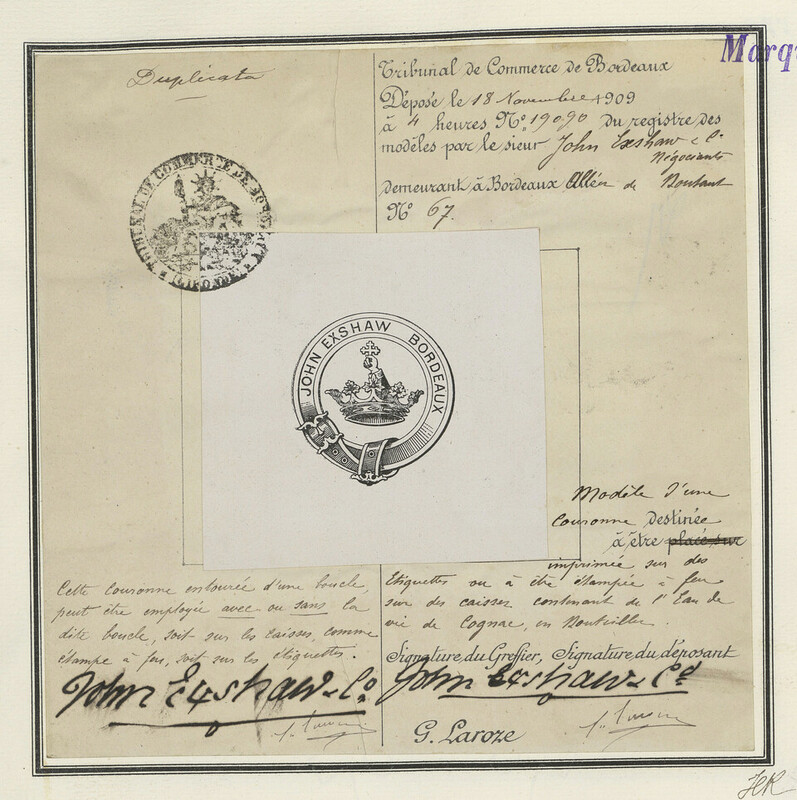 Duplicata
Marq
Tribunal de Commerce de Bordeaux
Déposé le 18 Novembre 1909
à 4 heures Nº 19090 du registre des
modèles par le sieur John Exshaw & Cº
Négociants
demeurant à Bordeaux Allées de Boutaut
Nº 67.
TRIBUNAL DE COMMERCE DE BORDEAUX
(GIRONDE)
JOHN EXSHAW BORDEAUX
Modèle d'une
couronne destinée
à être placé sur
imprimée sur des
Etiquettes ou à être étampée à feu
sur des caisses contenant de l'Eau de
vie de Cognac, en Bouteilles.
Cette couronne entourée d'une boucle,
peut être employée avec ou sans la
dite boucle, soit sur les caisses, comme
étampe à feu, soit sur les étiquettes.
Signature du Greffier, Signature du déposant
John Exshaw & Co.
John Exshaw & Cº
G. Laroze